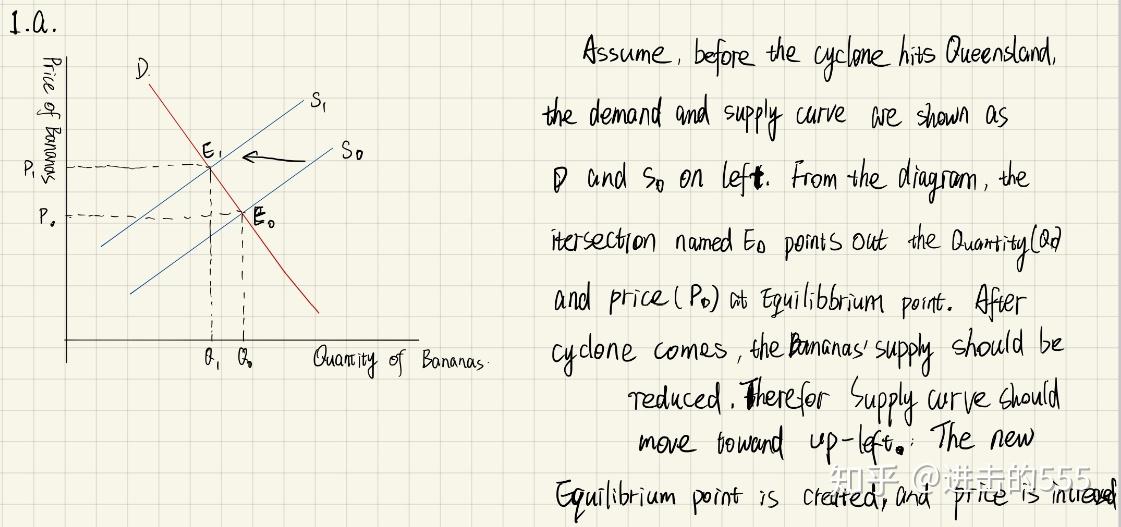 1.a.
Price of Bananas
D.
S1
S0
E1
E0
P1
P0
Q1
Q0
Quantity of Bananas.
Assume, before the cyclone hits Queensland,
the demand and supply curve are shown as
D and S0 on left. From the diagram, the
itersection named E0 points out the Quantity(Q0)
and price(P0) at Equilibbrium point. After
cyclone comes, the Bananas' supply should be
reduced. Therefor Supply curve should
move toward up-left. The new
Equilibrium point is created, and price is increased
知乎 @进击的555